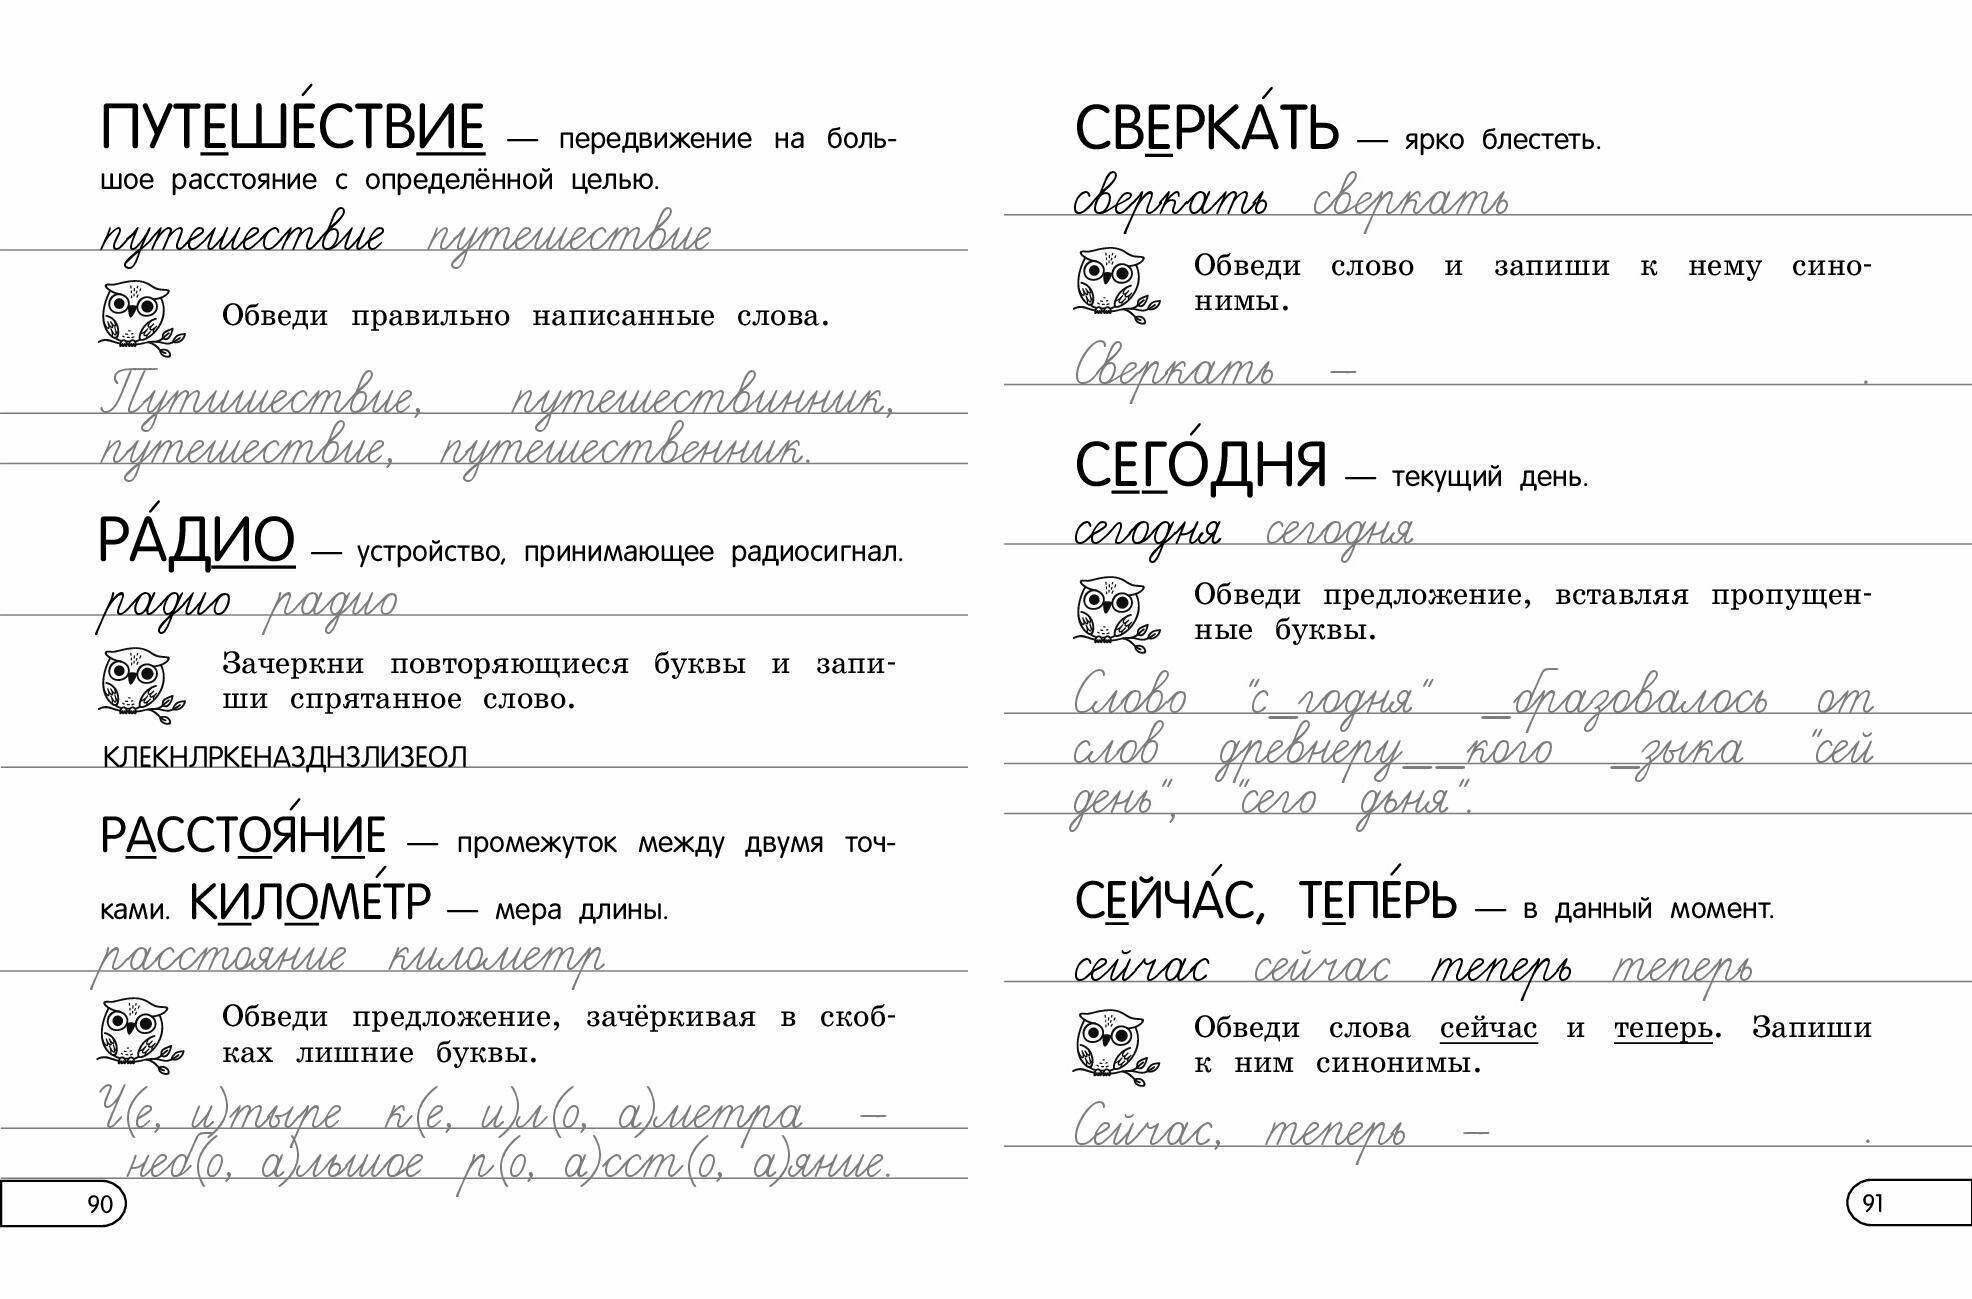 ПУТЕШЕ́СТВИЕ — передвижение на боль-
шое расстояние с определённой целью.
путешествие путешествие
Обведи правильно написанные слова.
Путишествие, путешествинник,
путешествие, путешественник.
РА́ДИО — устройство, принимающее радиосигнал.
радио радио
Зачеркни повторяющиеся буквы и запи-
ши спрятанное слово.
КЛЕКНЛРКЕНАЗДНЗЛИЗЕОЛ
РАССТОЯ́НИЕ — промежуток между двумя точ-
ками. КИЛОМЕ́ТР — мера длины.
расстояние километр
Обведи предложение, зачёркивая в скоб-
ках лишние буквы.
Ч(е, и)тыре к(е, и)л(о, а)метра —
неб(о, а)льшое р(о, а)сст(о, а)яние.
90
СВЕРКА́ТЬ — ярко блестеть.
сверкать сверкать
Обведи слово и запиши к нему сино-
нимы.
Сверкать — .
СЕГО́ДНЯ — текущий день.
сегодня сегодня
Обведи предложение, вставляя пропущен-
ные буквы.
Слово "с_годня" _бразовалось от
слов древнеру__кого _зыка "сей
день", "сего дьня".
СЕЙЧА́С, ТЕПЕ́РЬ — в данный момент.
сейчас сейчас теперь теперь
Обведи слова сейчас и теперь. Запиши
к ним синонимы.
Сейчас, теперь — .
91